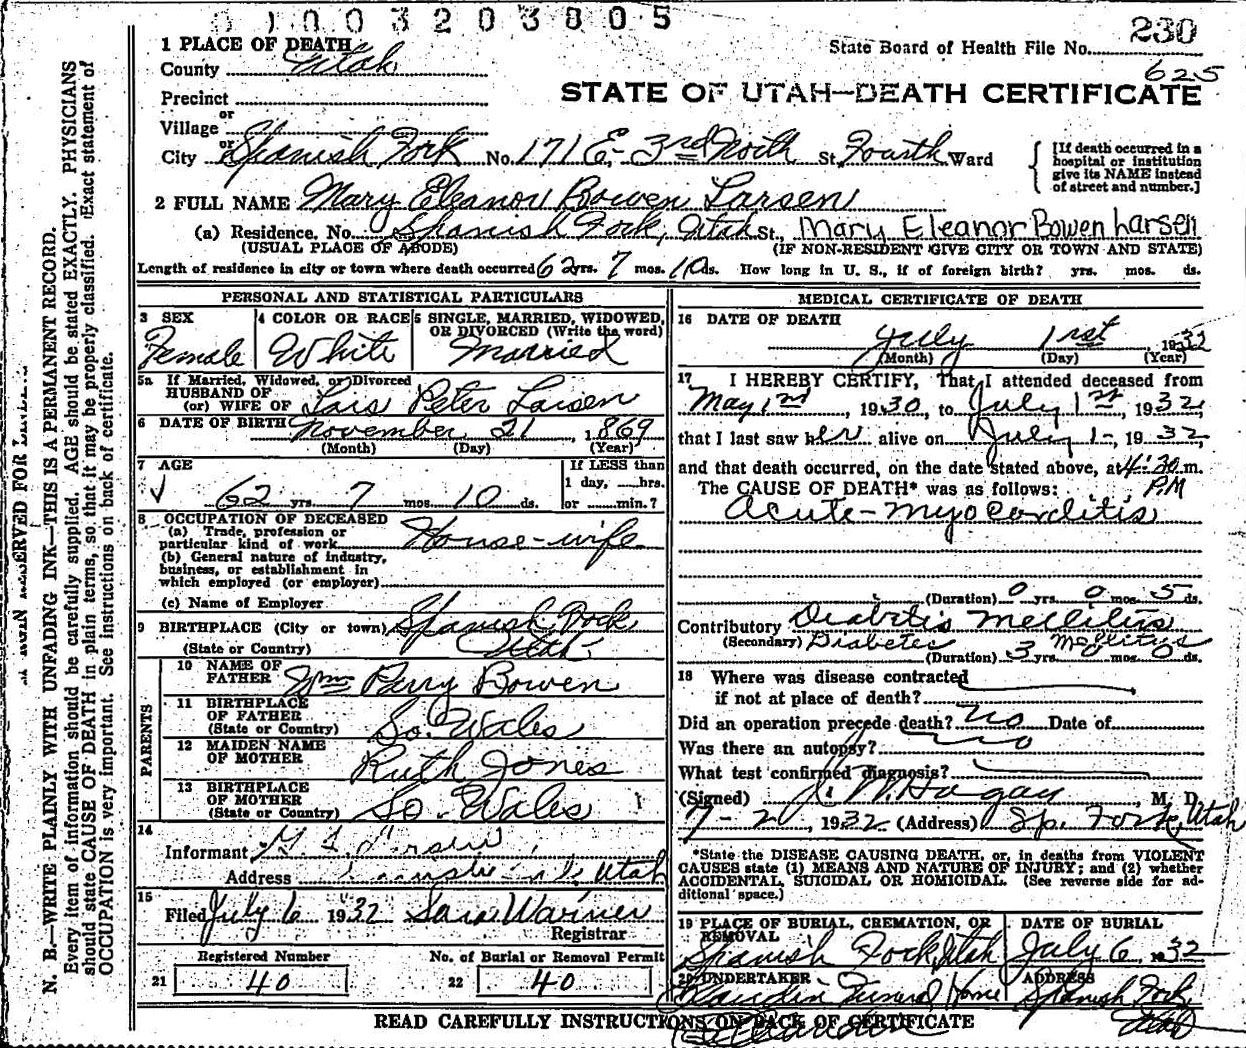 01003203805
230
State Board of Health File No.
625
1 PLACE OF DEATH
County Utah
STATE OF UTAH—DEATH CERTIFICATE
Precinct
or
Village
or
City Spanish Fork No. 171 E.- 3rd North St. Fourth Ward
[If death occurred in a hospital or institution give its NAME instead of street and number.]
2 FULL NAME Mary Eleanor Bowen Larsen
(a) Residence. No. Spanish Fork, Utah St., Mary Eleanor Bowen Larsen
(USUAL PLACE OF ABODE) (IF NON-RESIDENT GIVE CITY OR TOWN AND STATE)
Length of residence in city or town where death occurred 62 yrs. 7 mos. 10 ds. How long in U. S., if of foreign birth? yrs. mos. ds.
PERSONAL AND STATISTICAL PARTICULARS
3 SEX
Female
4 COLOR OR RACE
White
5 SINGLE, MARRIED, WIDOWED, OR DIVORCED (Write the word)
Married
5a If Married, Widowed, or Divorced
HUSBAND OF
(or) WIFE OF Lais Peter Larsen
6 DATE OF BIRTH November 21, 1869
(Month) (Day) (Year)
7 AGE
62 yrs. 7 mos. 10 ds.
If LESS than
1 day, hrs.
or min.?
8 OCCUPATION OF DECEASED
(a) Trade, profession or
particular kind of work House-wife
(b) General nature of industry,
business, or establishment in
which employed (or employer)
(c) Name of Employer
9 BIRTHPLACE (City or town) Spanish Fork
(State or Country) Utah
PARENTS
10 NAME OF FATHER Wm Perry Bowen
11 BIRTHPLACE OF FATHER
(State or Country) So. Wales
12 MAIDEN NAME OF MOTHER Ruth Jones
13 BIRTHPLACE OF MOTHER
(State or Country) So. Wales
14
Informant
Address Utah
15
Filed July 6 1932 Sara Warner
Registrar
Registered Number
21 40
No. of Burial or Removal Permit
22 40
MEDICAL CERTIFICATE OF DEATH
16 DATE OF DEATH
July 1st, 1932
(Month) (Day) (Year)
17 I HEREBY CERTIFY, That I attended deceased from
May 1st, 1930, to July 1st, 1932
that I last saw her alive on July 1-, 1932,
and that death occurred, on the date stated above, at 4:30 m.
P.M
The CAUSE OF DEATH* was as follows:
Acute-Myocorditis
(Duration) 0 yrs. 0 mos. 5 ds.
Contributory Diabetis Mellitus
(Secondary) Diabetes Mellitus
(Duration) 3 yrs. 0 mos. 0 ds.
18 Where was disease contracted
if not at place of death?
Did an operation precede death? no Date of
Was there an autopsy? no
What test confirmed diagnosis?
(Signed) J. W. Hagan, M. D.
7-2, 1932 (Address) Sp. Fork, Utah
*State the DISEASE CAUSING DEATH, or, in deaths from VIOLENT
CAUSES state (1) MEANS AND NATURE OF INJURY; and (2) whether
ACCIDENTAL, SUICIDAL OR HOMICIDAL. (See reverse side for ad-
ditional space.)
19 PLACE OF BURIAL, CREMATION, OR REMOVAL
Spanish Fork, Utah
DATE OF BURIAL
July 6, 1932
20 UNDERTAKER
Claudin Funeral Home
ADDRESS
Spanish Fork
Utah
READ CAREFULLY INSTRUCTIONS ON BACK OF CERTIFICATE
N. B.—WRITE PLAINLY WITH UNFADING INK—THIS IS A PERMANENT RECORD.
Every item of information should be carefully supplied. AGE should be stated EXACTLY. PHYSICIANS
should state CAUSE OF DEATH in plain terms, so that it may be properly classified. Exact statement of
OCCUPATION is very important. See instructions on back of certificate.